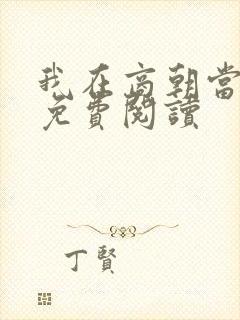 我在商朝當
免費閱讀
丁賢